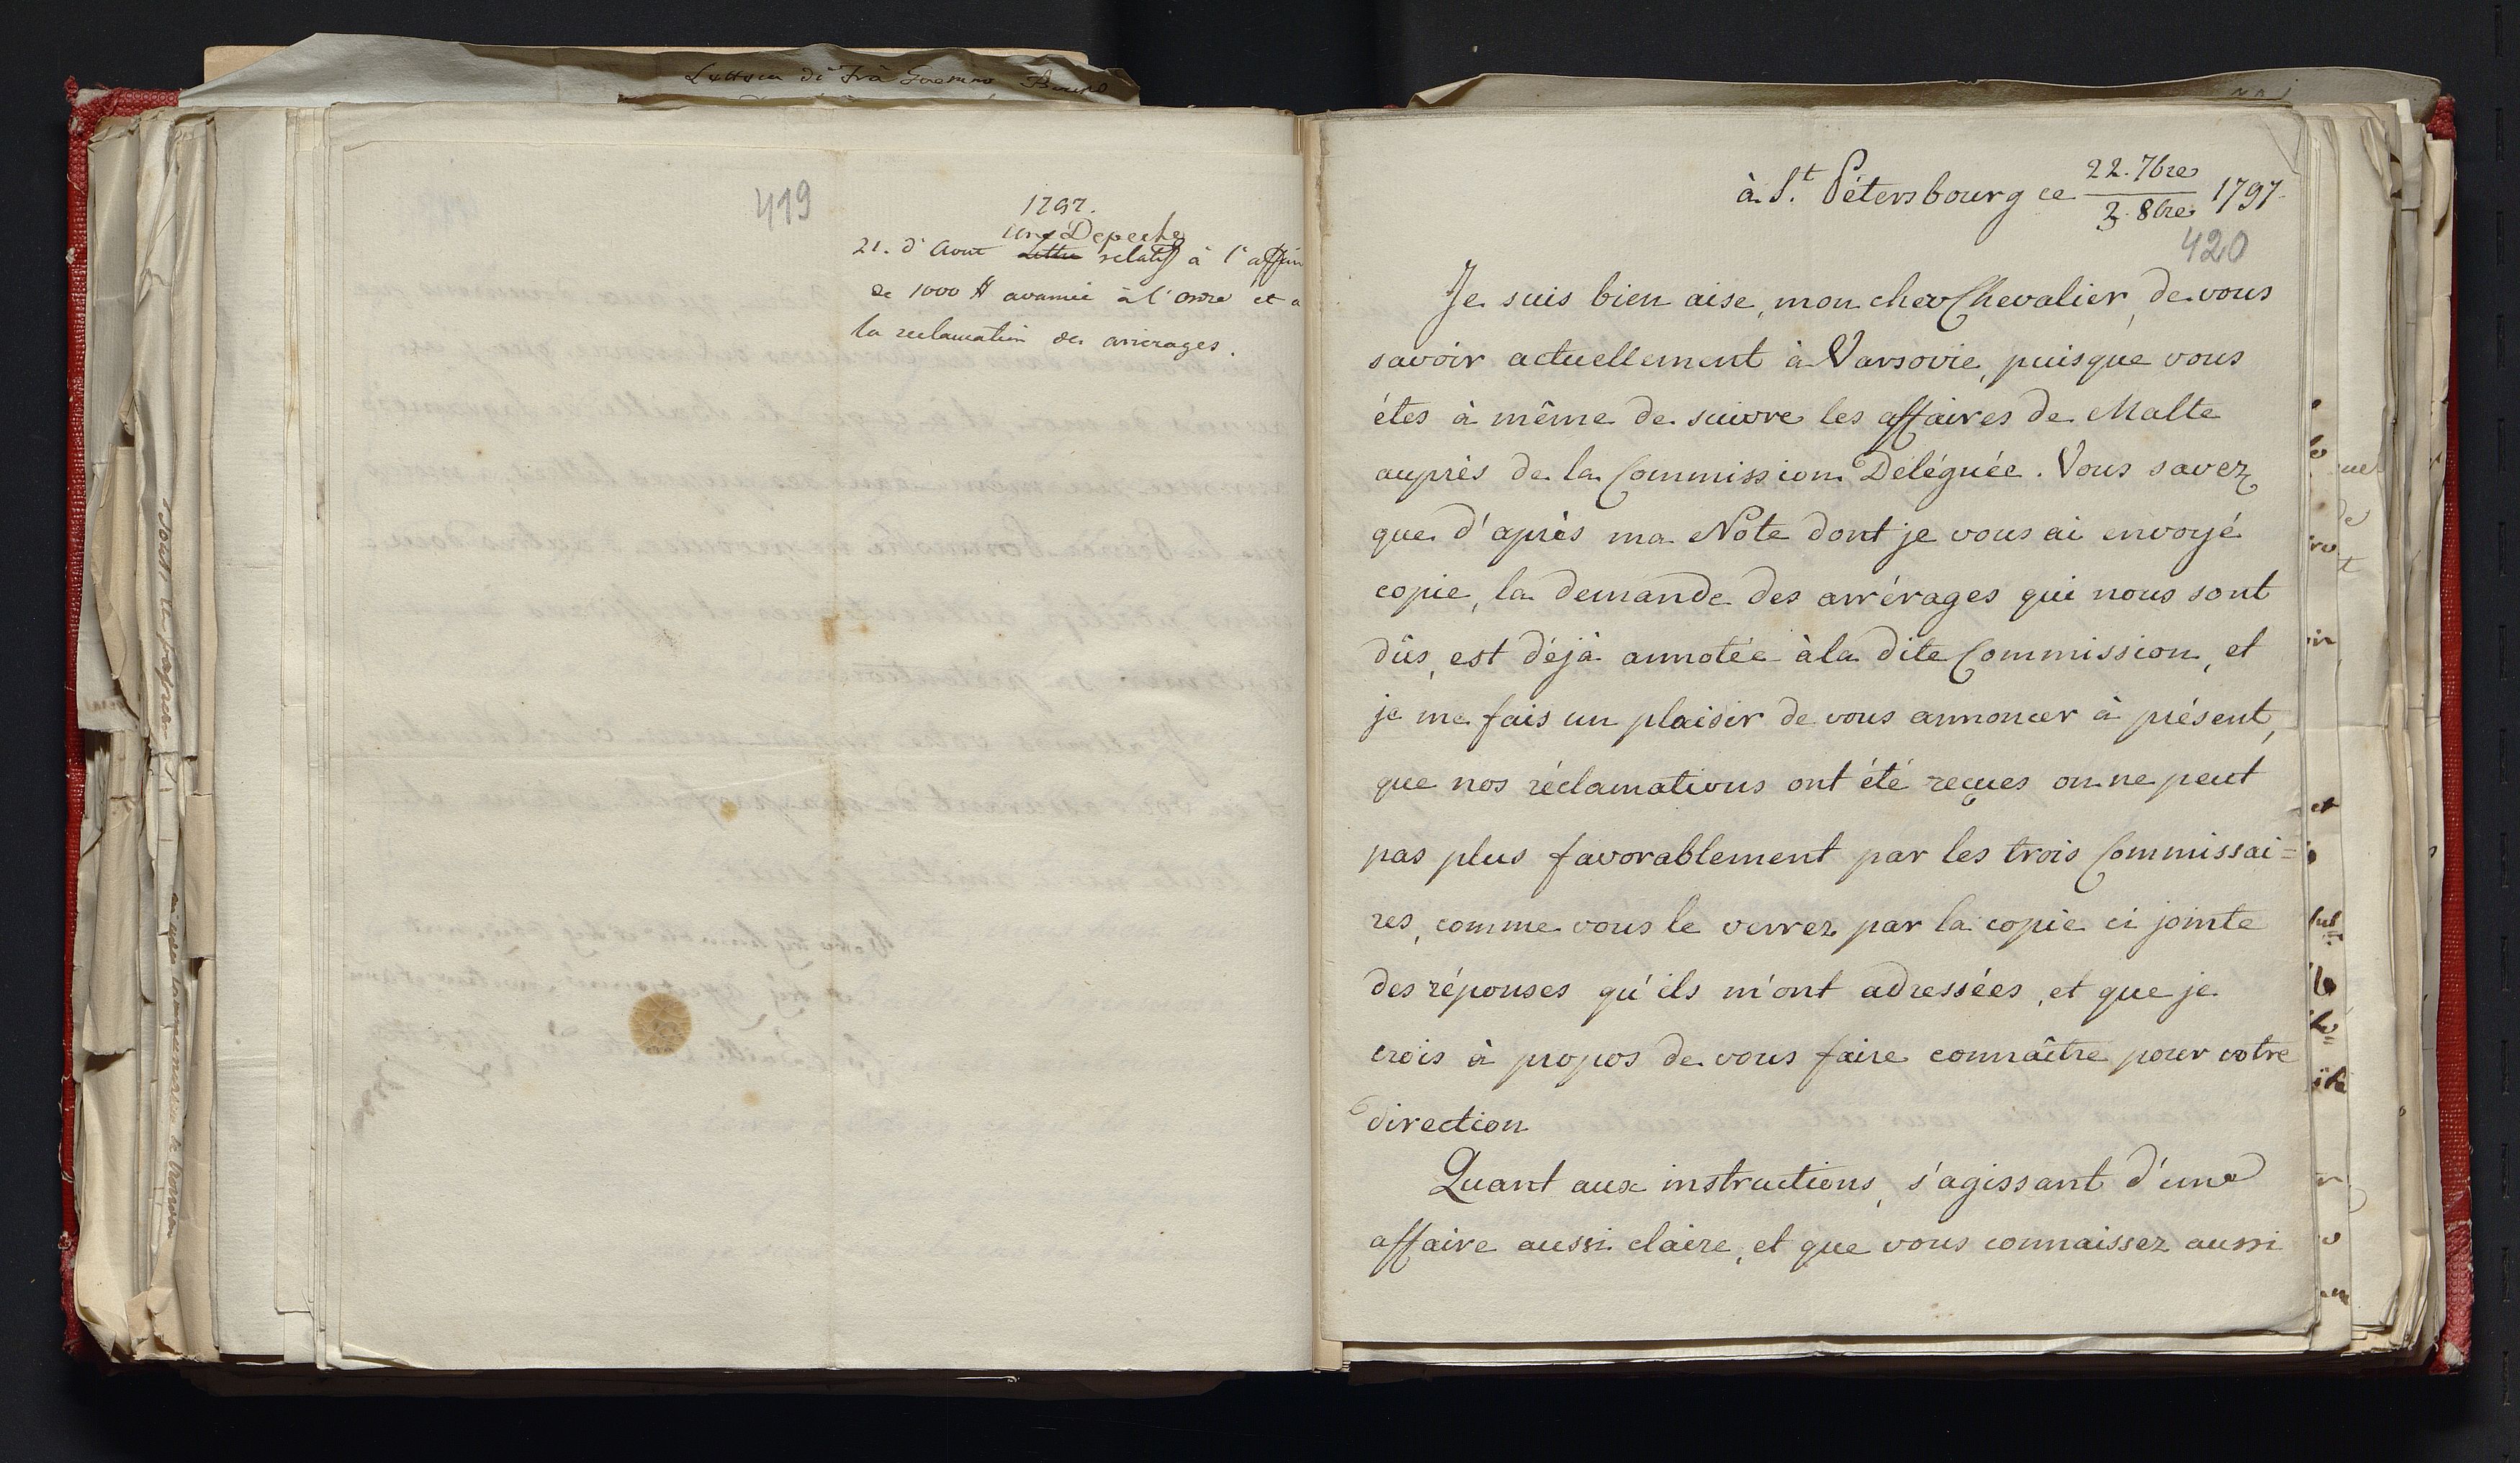 419
1797.
une Depeche
21. d'Aout lettre relatif à l'affaire
de 1000 # avancée à l'ordre et a
la reclamation des arrierages.
à St. Pétersbourg ce 22. 7bre / 3. 8bre 1797.
420
Je suis bien aise, mon cher Chevalier, de vous
savoir actuellement à Varsovie, puisque vous
étes à même de suivre les affaires de Malte
auprès de la Commission Deléguée. Vous savez
que d'après ma Note dont je vous ai envoyé
copie, la demande des arrérages qui nous sont
dûs, est déjà annotée à la dite Commission, et
je me fais un plaisir de vous annoncer à présent,
que nos réclamations ont été reçues on ne peut
pas plus favorablement par les trois Commissai=
res, comme vous le verrez par la copie ci jointe
des réponses qu'ils m'ont adressées, et que je
crois à propos de vous faire connaître pour votre
direction
Quant aux instructions, s'agissant d'une
affaire aussi claire, et que vous connaissez aussi